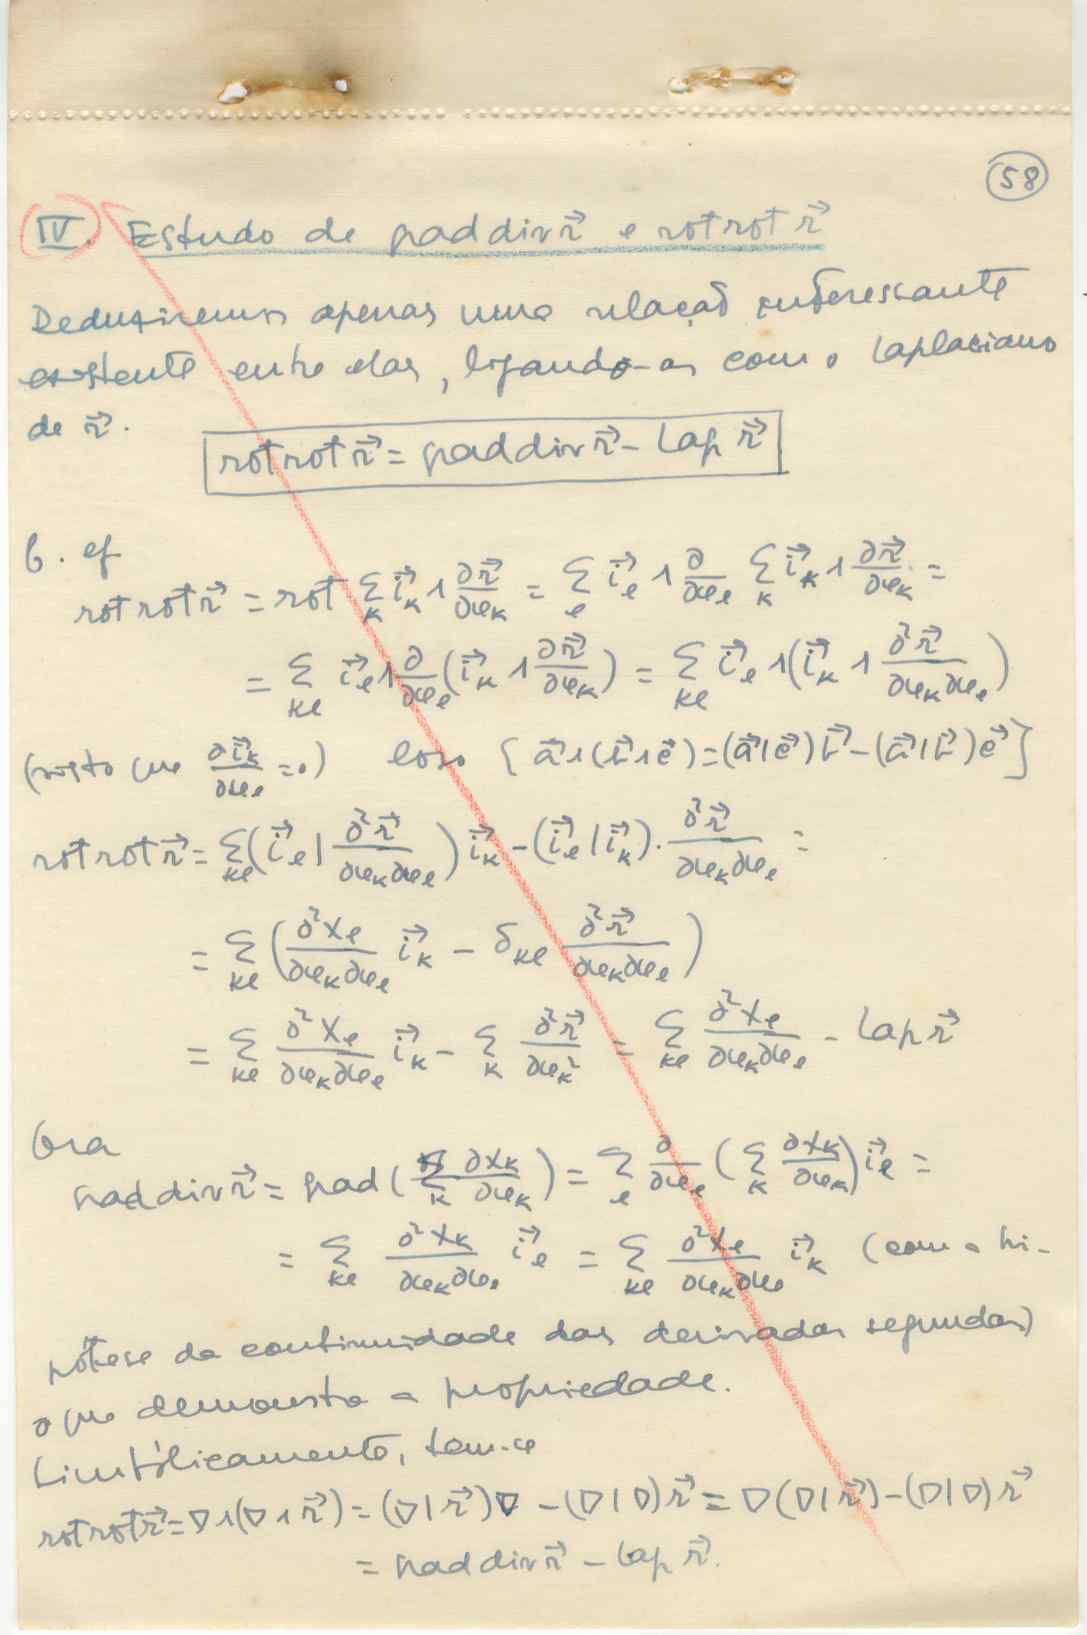 58
IV. Estudo de grad div r⃗ e rot rot r⃗
Deduziremos apenas uma relação interessante
existente entre elas, ligando-as com o laplaciano
de r⃗.
rot rot r⃗ = grad div r⃗ - lap r⃗
C. ef
rot rot r⃗ = rot ∑_k i⃗_k ∧ ∂r⃗/∂x_k = ∑_l i⃗_l ∧ ∂/∂x_l ∑_k i⃗_k ∧ ∂r⃗/∂x_k =
= ∑_kl i⃗_l ∧ ∂/∂x_l (i⃗_k ∧ ∂r⃗/∂x_k) = ∑_kl i⃗_l ∧ (i⃗_k ∧ ∂²r⃗/∂x_k∂x_l)
(visto que ∂i⃗_k/∂x_l = 0) logo {a⃗ ∧ (b⃗ ∧ c⃗) = (a⃗ | c⃗) b⃗ - (a⃗ | b⃗) c⃗}
rot rot r⃗ = ∑_kl (i⃗_l | ∂²r⃗/∂x_k∂x_l) i⃗_k - (i⃗_l | i⃗_k) · ∂²r⃗/∂x_k∂x_l =
= ∑_kl (∂²X_l/∂x_k∂x_l i⃗_k - δ_kl ∂²r⃗/∂x_k∂x_l)
= ∑_kl ∂²X_l/∂x_k∂x_l i⃗_k - ∑_k ∂²r⃗/∂x_k² = ∑_kl ∂²X_l/∂x_k∂x_l - lap r⃗
Ora
grad div r⃗ = grad (∑_k ∂X_k/∂x_k) = ∑_l ∂/∂x_l (∑_k ∂X_k/∂x_k) i⃗_l =
= ∑_kl ∂²X_k/∂x_k∂x_l i⃗_l = ∑_kl ∂²X_l/∂x_k∂x_l i⃗_k (com a hi-
pótese da continuidade das derivadas segundas)
o que demonstra a propriedade.
Simbòlicamente, tem-se
rot rot r⃗ = ∇ ∧ (∇ ∧ r⃗) = (∇ | r⃗) ∇ - (∇ | ∇) r⃗ = ∇ (∇ | r⃗) - (∇ | ∇) r⃗
= grad div r⃗ - lap r⃗.